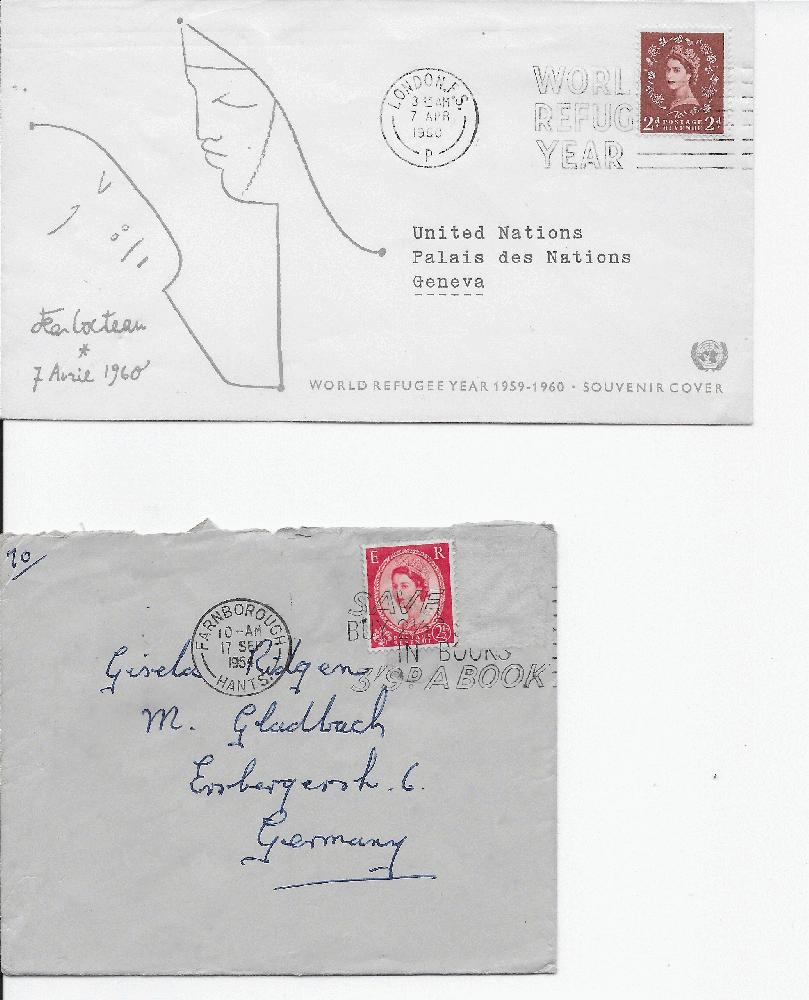 LONDON F.S
3 15 AM
7 APR
1960
P
WORL
REFUG
YEAR
2d POSTAGE 2d
REVENUE
United Nations
Palais des Nations
Geneva
Jean Cocteau
*
7 Avril 1960
WORLD REFUGEE YEAR 1959-1960 · SOUVENIR COVER
To
E R
FARNBOROUGH
10-AM
17 SEP
1954
HANTS.
SAVE
IN BOOKS
3'9D. A BOOK
Gisela
M. Gladbach
6.
Germany